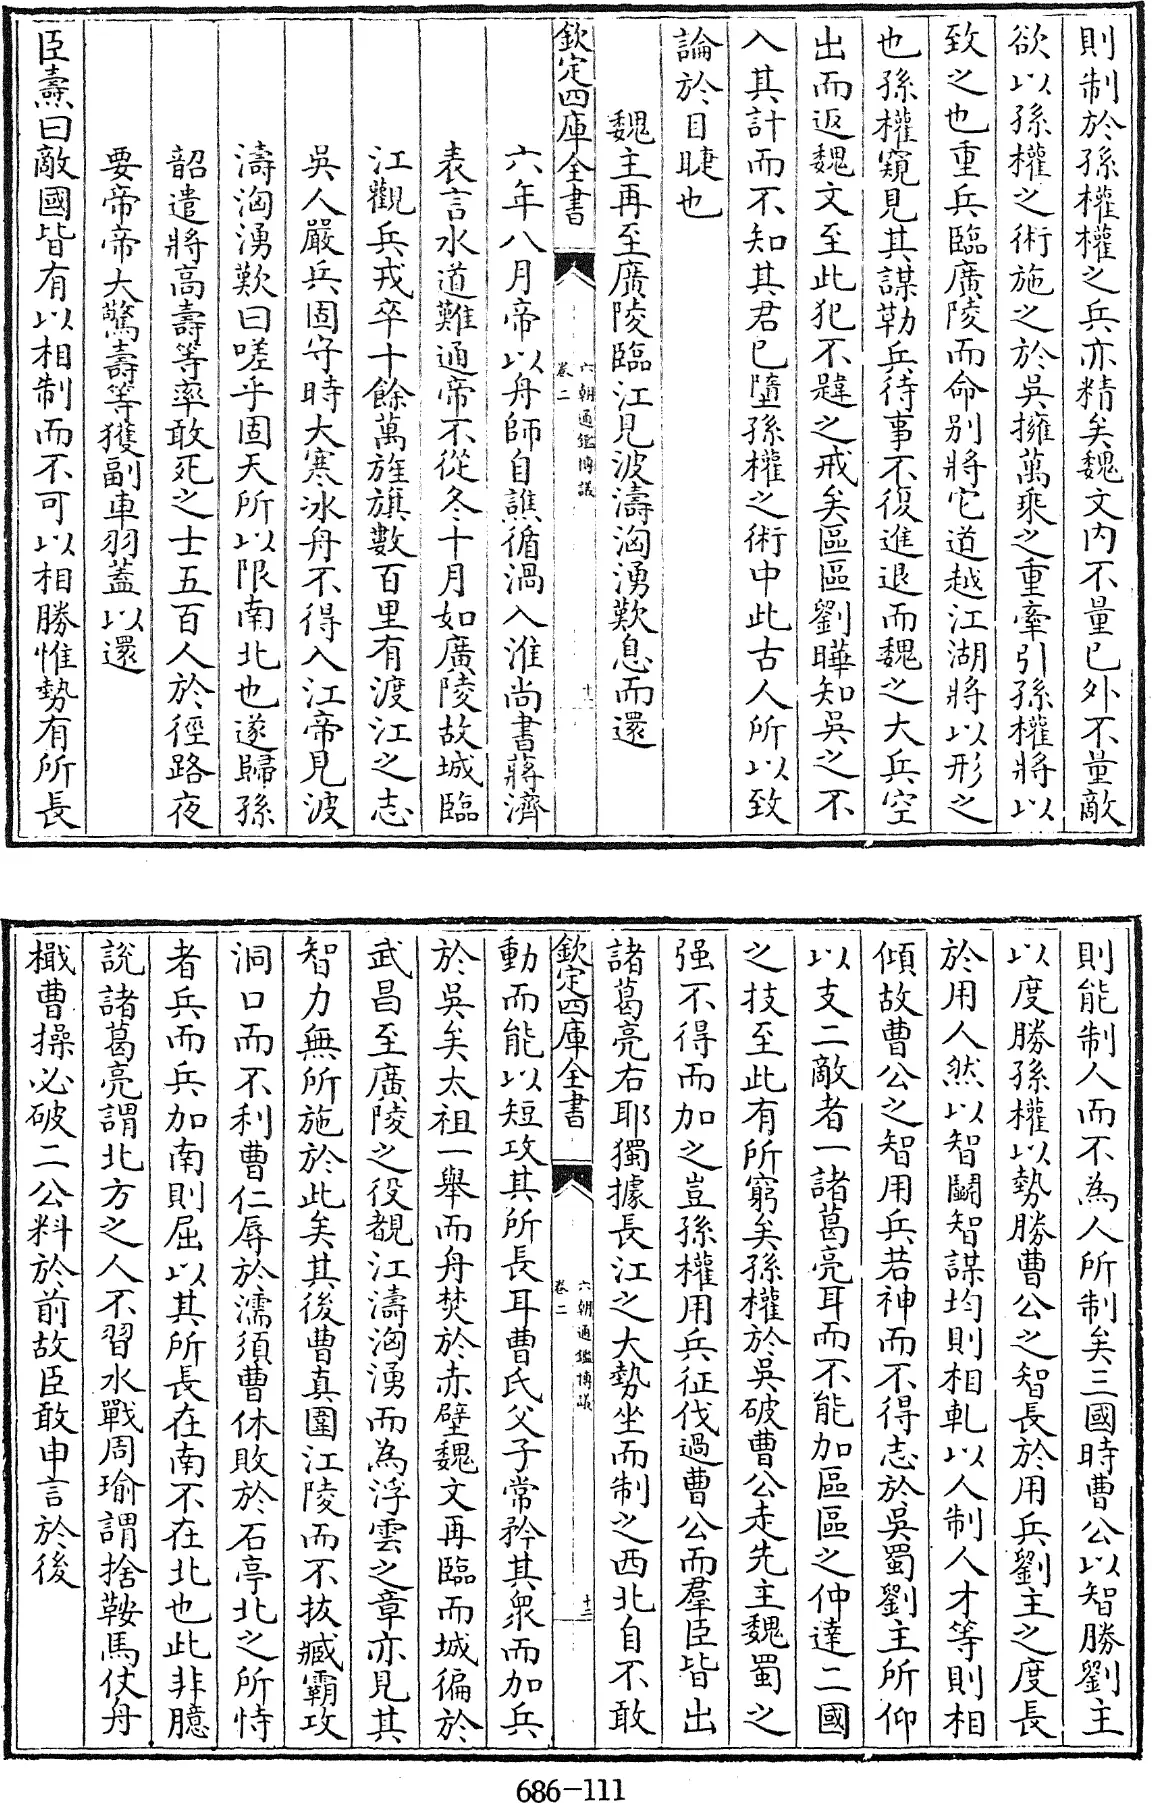 則制於孫權權之兵亦精矣魏文内不量已外不量敵
欲以孫權之術施之於吳擁萬乘之重牽引孫權將以
致之也重兵臨廣陵而命别將它道越江湖將以形之
也孫權窺見其謀勒兵待事不復進退而魏之大兵空
出而返魏文至此犯不韙之戒矣區區劉曄知吳之不
入其計而不知其君已墮孫權之術中此古人所以致
論於目睫也
魏主再至廣陵臨江見波濤洶湧歎息而還
欽定四庫全書
六朝通鑑博議
卷二
十二
六年八月帝以舟師自譙循渦入淮尚書蔣濟
表言水道難通帝不從冬十月如廣陵故城臨
江觀兵戎卒十餘萬旌旗數百里有渡江之志
吳人嚴兵固守時大寒冰舟不得入江帝見波
濤洶湧歎曰嗟乎固天所以限南北也遂歸孫
韶遣將高壽等率敢死之士五百人於徑路夜
要帝帝大驚壽等獲副車羽蓋以還
臣燾曰敵國皆有以相制而不可以相勝惟勢有所長
則能制人而不為人所制矣三國時曹公以智勝劉主
以度勝孫權以勢勝曹公之智長於用兵劉主之度長
於用人然以智鬭智謀均則相軋以人制人才等則相
傾故曹公之智用兵若神而不得志於吳蜀劉主所仰
以支二敵者一諸葛亮耳而不能加區區之仲達二國
之技至此有所窮矣孫權於吳破曹公走先主魏蜀之
强不得而加之豈孫權用兵征伐過曹公而羣臣皆出
諸葛亮右耶獨據長江之大勢坐而制之西北自不敢
欽定四庫全書
六朝通鑑博議
卷二
十三
動而能以短攻其所長耳曹氏父子常矜其衆而加兵
於吳矣太祖一舉而舟焚於赤壁魏文再臨而城徧於
武昌至廣陵之役覩江濤洶湧而為浮雲之章亦見其
智力無所施於此矣其後曹真圍江陵而不抜臧霸攻
洞口而不利曹仁辱於濡須曹休敗於石亭北之所恃
者兵而兵加南則屈以其所長在南不在北也此非臆
説諸葛亮謂北方之人不習水戰周瑜謂捨鞍馬仗舟
檝曹操必破二公料於前故臣敢申言於後
686-111